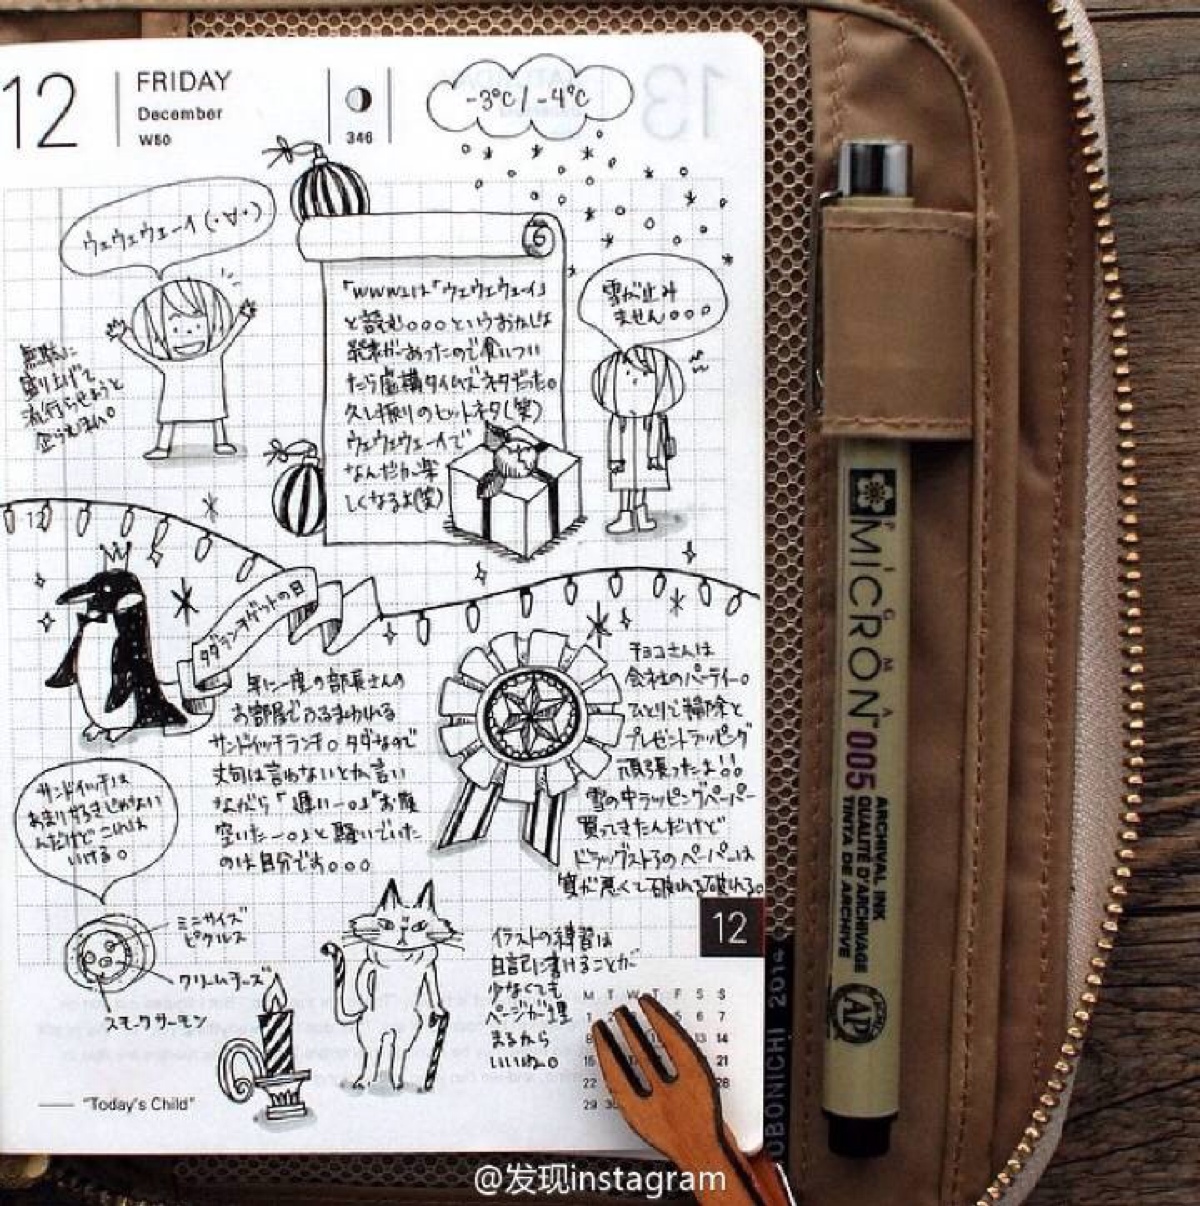 12
FRIDAY
December
W50
346
-3℃/-4℃
ウェウェウェーイ(・∀・)
6
「www」は「ウェウェウェーイ」
と読む。。。というおかしな
があったので食いつい
たら虚構タイムズネタだった。
久し振りのヒットネタ(笑)
ウェウェウェーイで
なんだか楽
しくなるよ(笑)
雪が止み
ません。。。
無駄に
盛り上げて
流行らせようと
12
タダランチゲットの日
年に一度の部長さんの
お部屋でふるまわれる
サンドイッチランチ。タダなので
文句は言わないとか言い
ながら「遅いー。」「お腹
空いたー。」と騒いでいた
のは自分です。。。
チョコさんは
会社のパーティー。
ひとりで掃除と
プレゼントラッピング
頑張ったよ!!
雪の中ラッピングペーパー
買ってきたんだけど
ドラッグストアのペーパーは
質が悪くて破れる破れる。
サンドイッチは
あまり好きじゃない
んだけどこれは
いける。
ミニサイズ
ピクルス
クリームチーズ
スモークサーモン
イラストの練習は
日記に書けることが
少なくても
ページが埋
まるから
いいね。
12
M T W T F S S
1 2 5 6 7
8 13 14
15 21
22 28
29 30
"Today's Child"
HOBONICHI 2014
PIGMA
MICRON
005
ARCHIVAL INK
QUALITÉ D'ARCHIVAGE
TINTA DE ARCHIVE
AP
@发现instagram